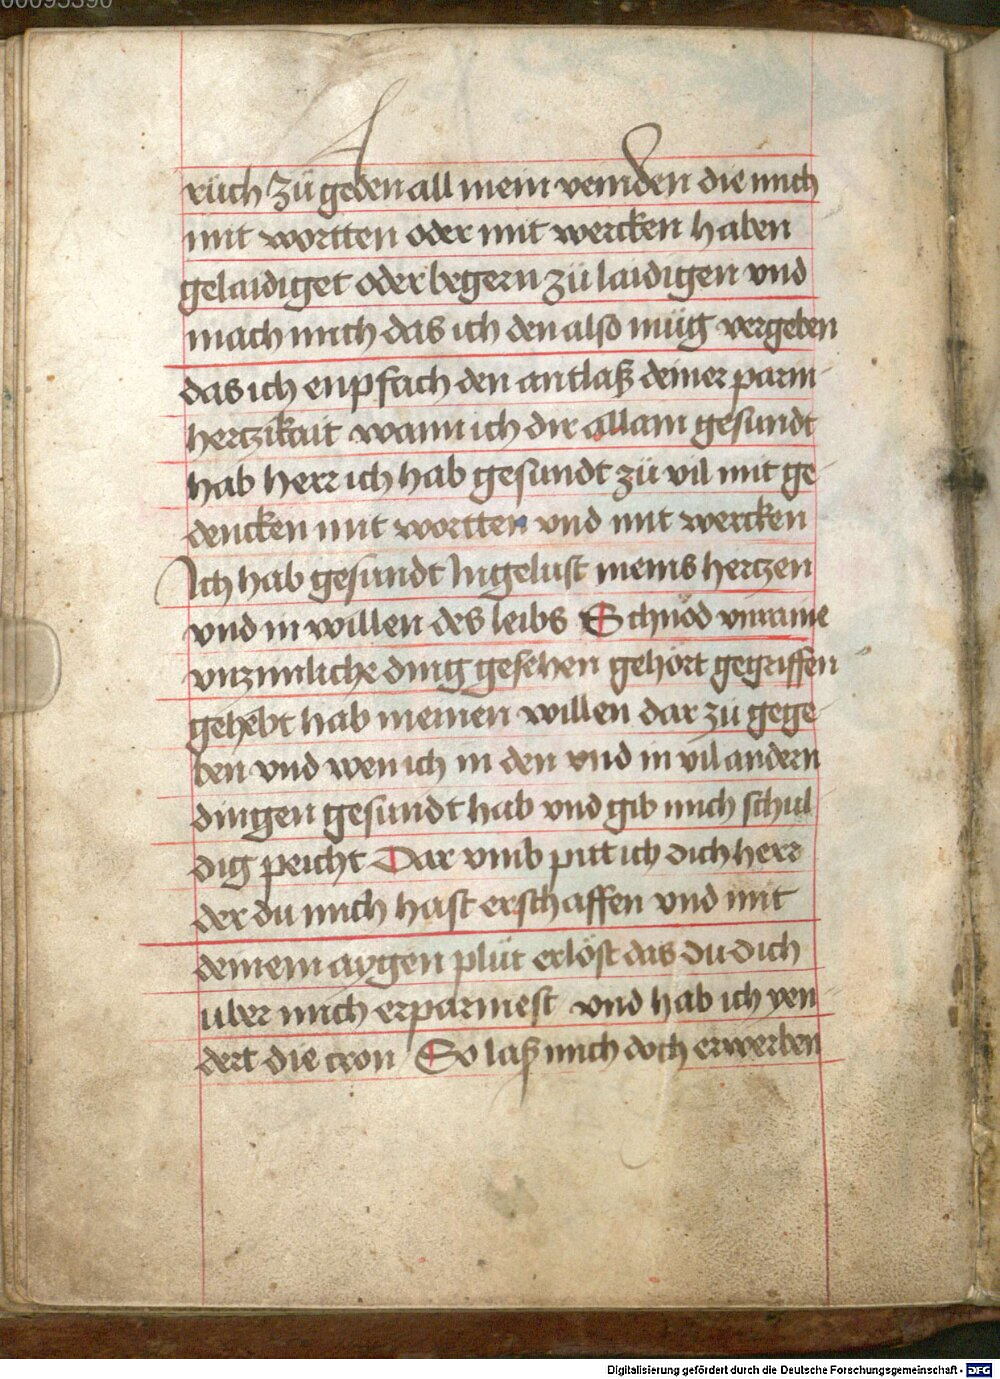 00095390
rüch zü geben all mein veinden die mich
mit wortten oder mit wercken haben
gelaidiget oder begern zü laidigen vnd
mach mich das ich den also müg vergeben
das ich enpfach den antlaß deiner parm
hertzikait wann ich dir allain gesundt
hab herr ich hab gesundt zü vil mit ge
dencken mit wortten vnd mit wercken
Ich hab gesundt In gelust meins hertzen
vnd in willen des leibs Schnöd vnraine
vnzimliche ding gesehen gehört gegriffen
gehebt hab meinen willen dar zü gege
ben vnd wen ich in den vnd in vil andern
dingen gesundt hab vnd gib mich schul
dig peicht Dar vmb pitt ich dich herr
der du mich hast erschaffen vnd mit
deinem aygen plüt erlöst das du dich
uber mich erparmest vnd hab ich yen
dert die cron So laß mich doch erwerben
Digitalisierung gefördert durch die Deutsche Forschungsgemeinschaft - DFG